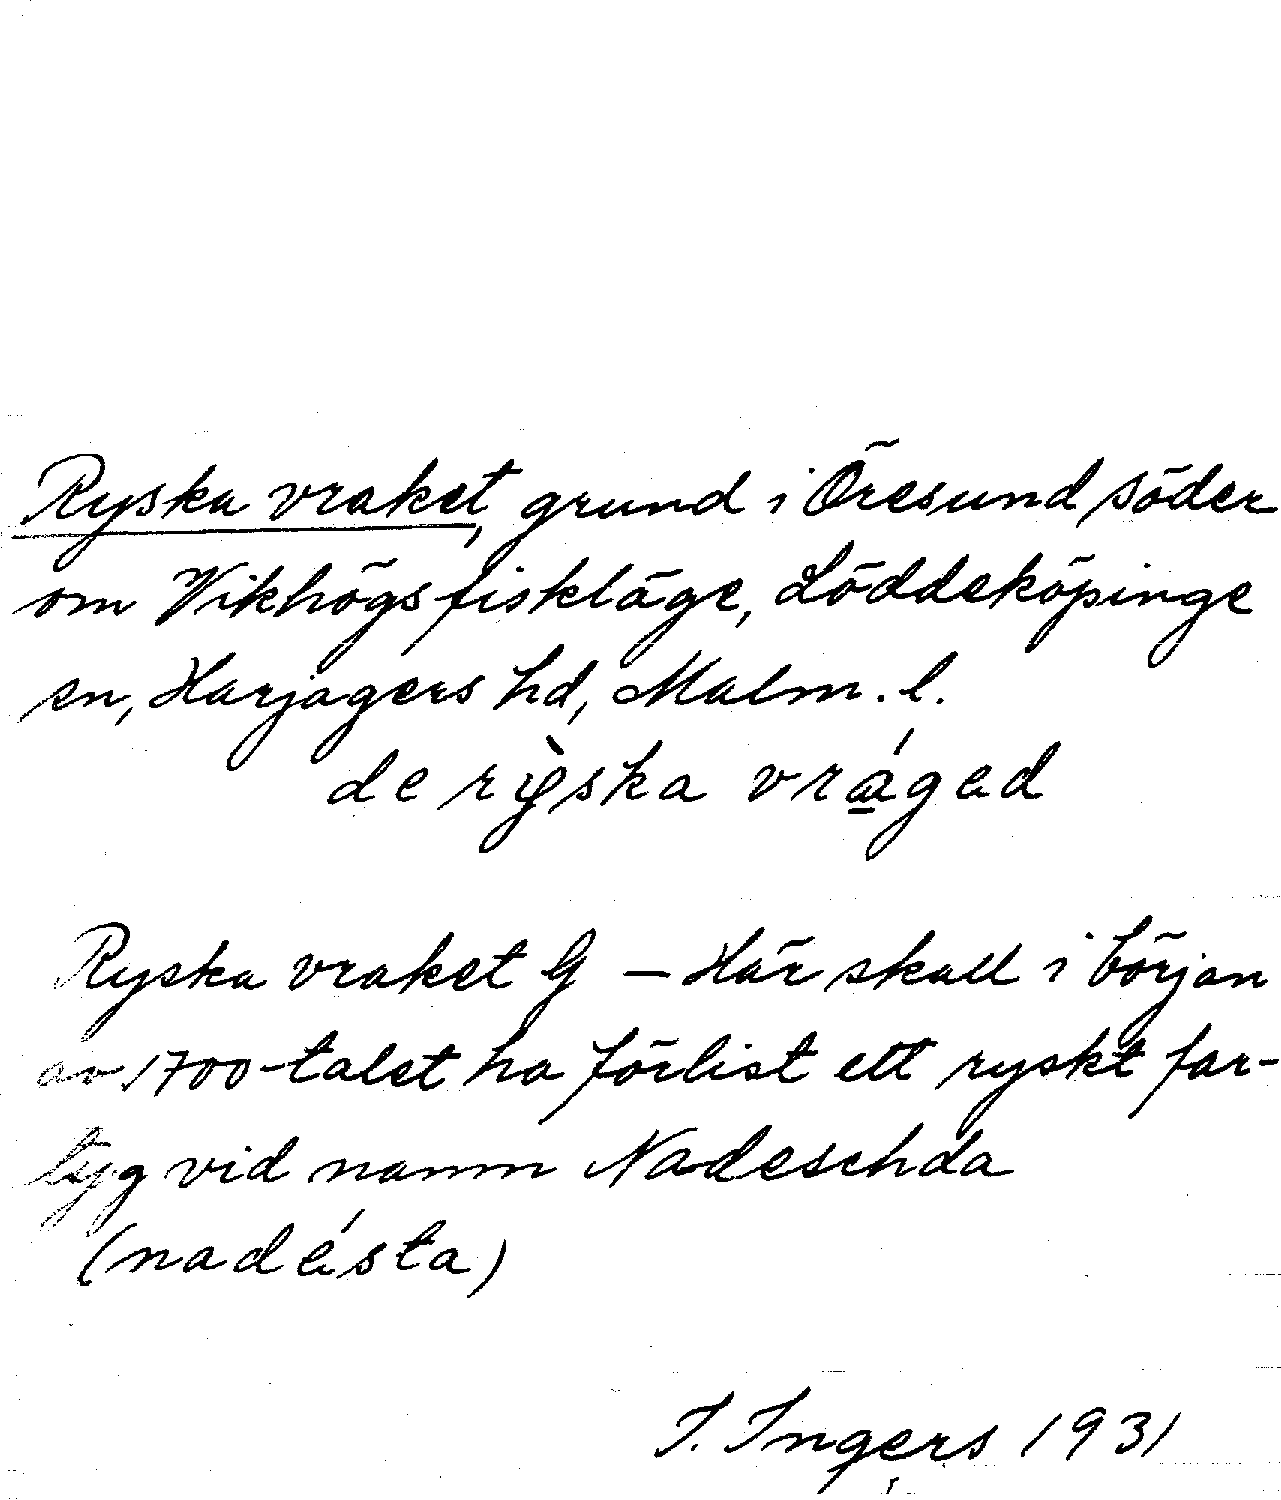 Ryska vraket, grund i Öresund söder
om Vikhögs fiskläge, Löddeköpinge
sn, Harjagers hd, Malm. l.
de rỳska vrágad
Ryska vraket G — Här skall i början
av 1700-talet ha förlist ett ryskt far-
tyg vid namn Nadeschda
(nadésta)
I. Ingers 1931